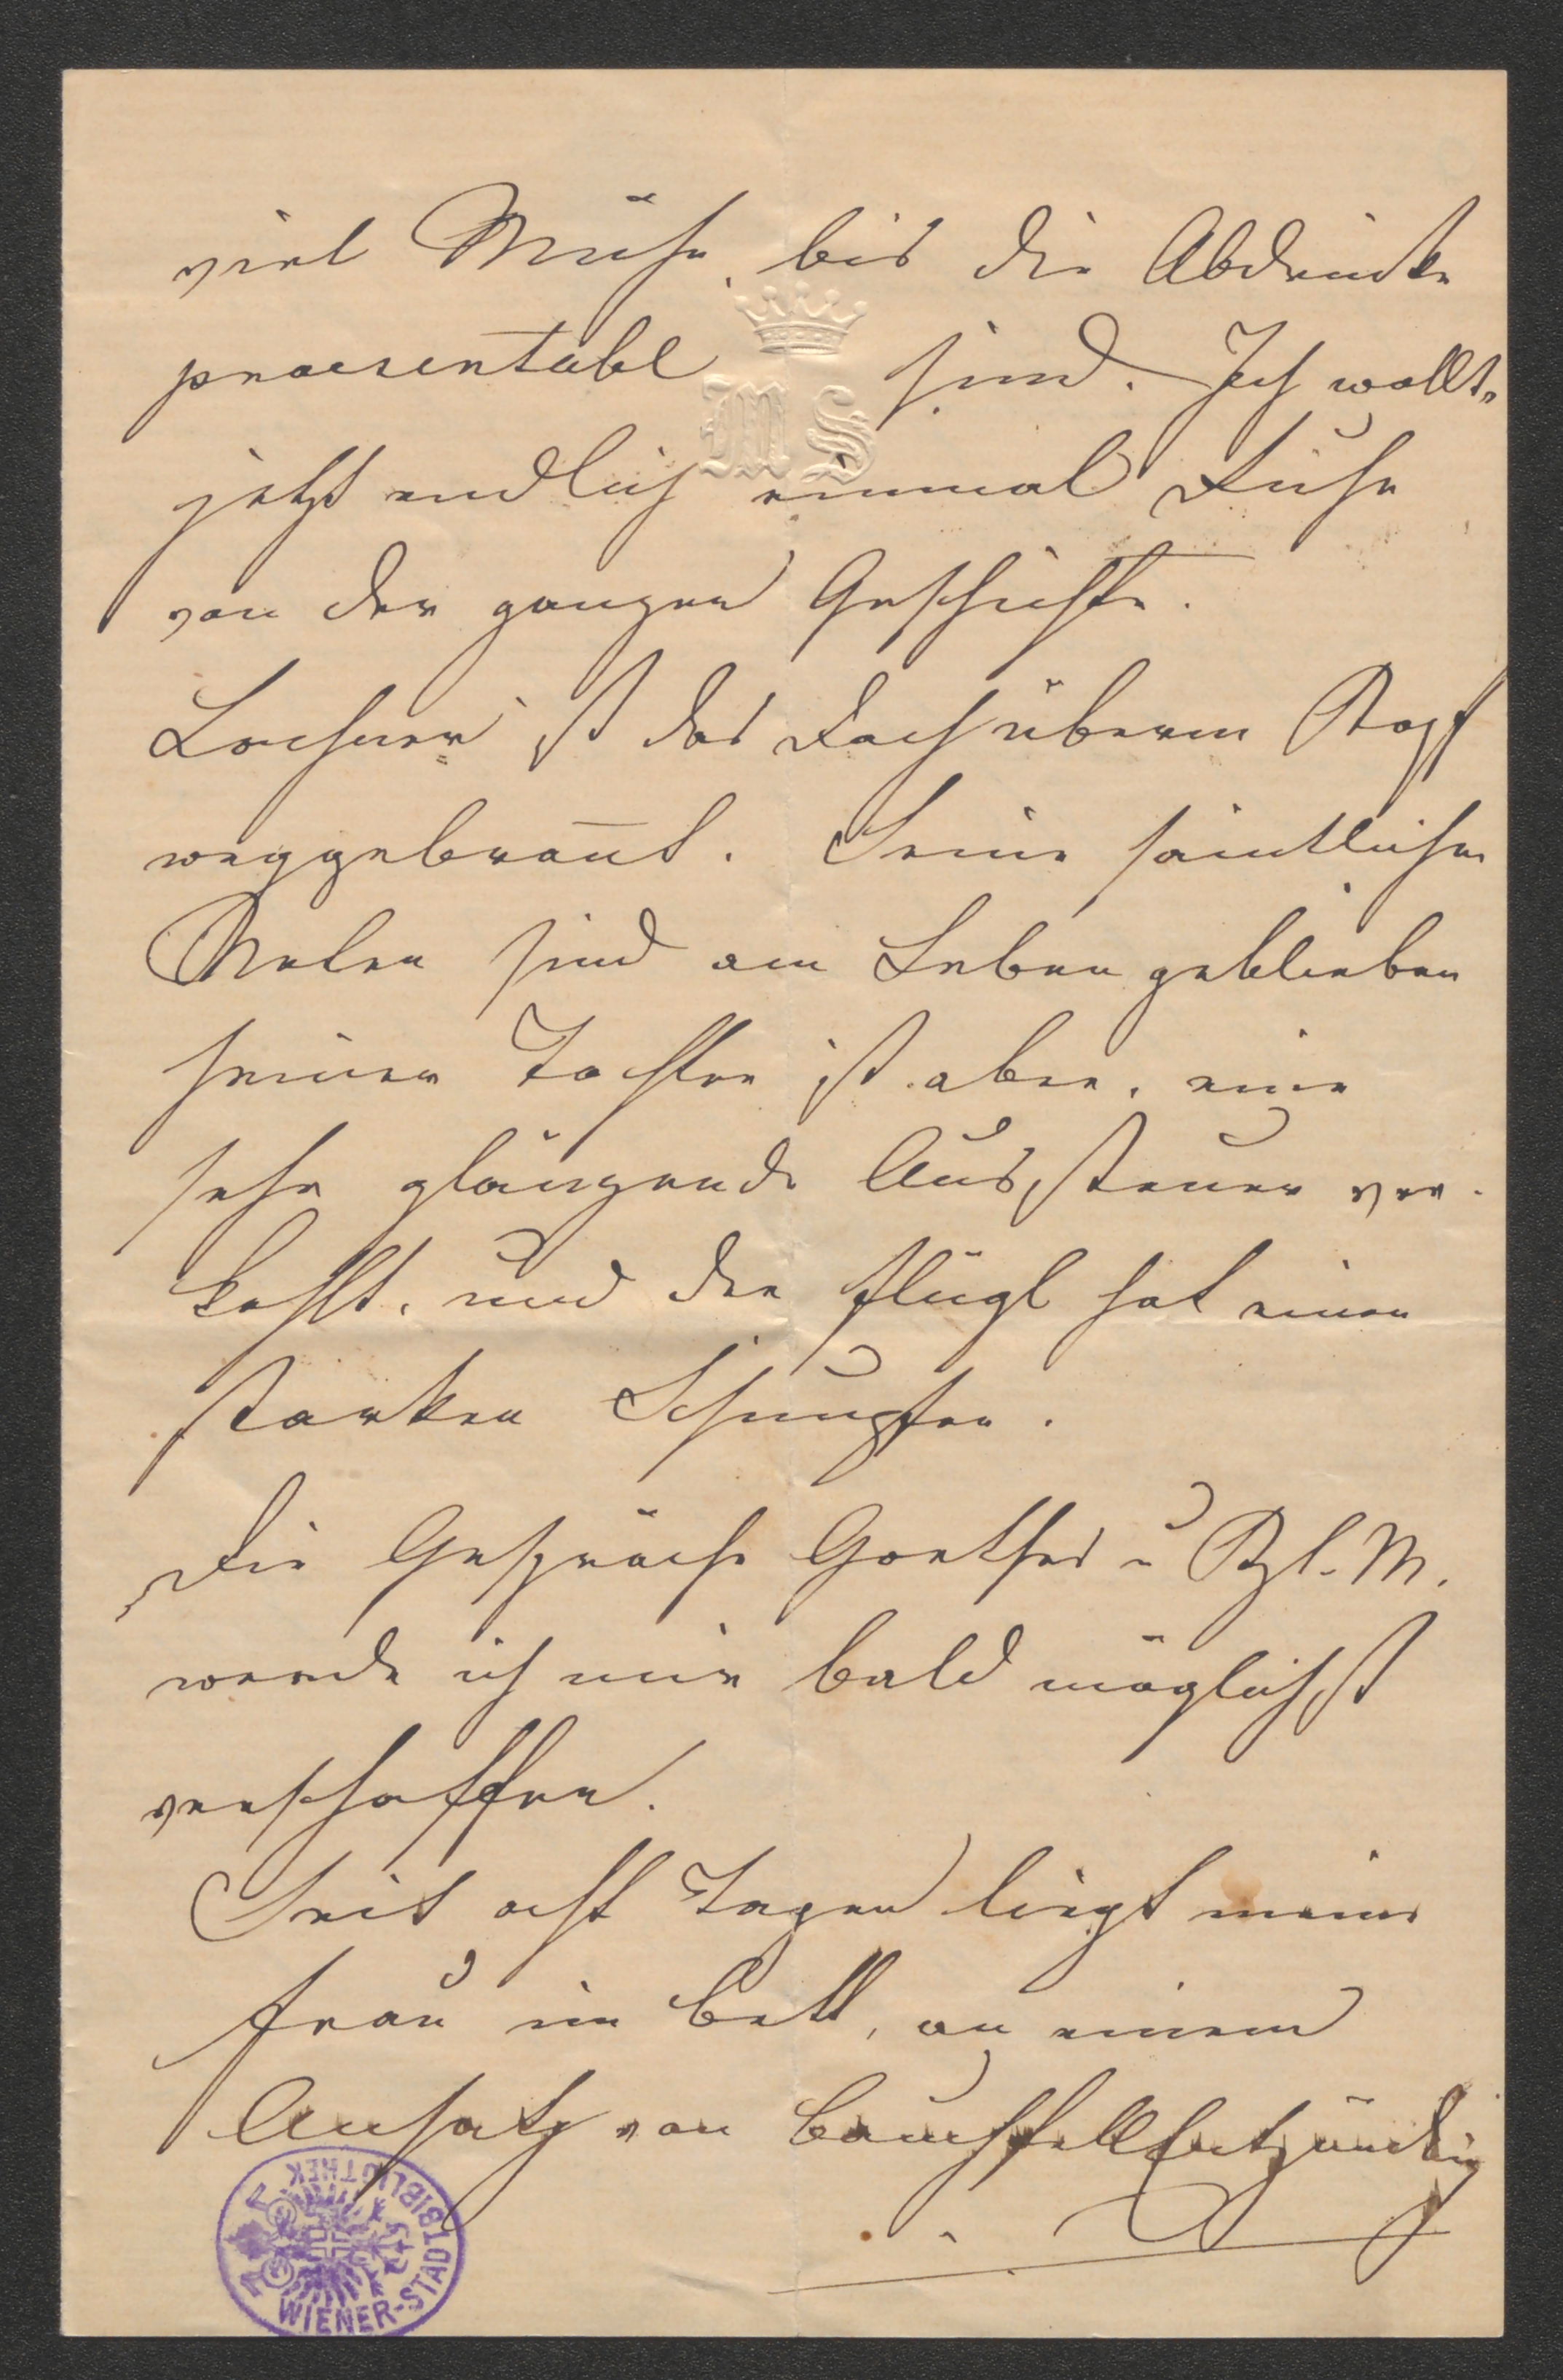 viel Mühe, bis die Abdrücke
praesentabl sind. Ich wollte
MS
jetzt endlich einmal Ruhe
von der ganzen Geschichte.
Lochner ist das Dach überm Kopf
weggebrañt. Seine sämtlichen
sind am Leben geblieben
seiner Tochter ist aber, eine
sehr glänzende Aussteuer ver-
kohlt, und der Flügl hat einen
starken Schnupfen.
Die Gespräche Goethes u Kzl. M.
werde ich mir bald möglichst
verschaffen.
Seit acht Tagen liegt meine
Frau im Bett, an einem
Ansatz von Bauchfellentzündung
WIENER-STADTBIBLIOTHEK